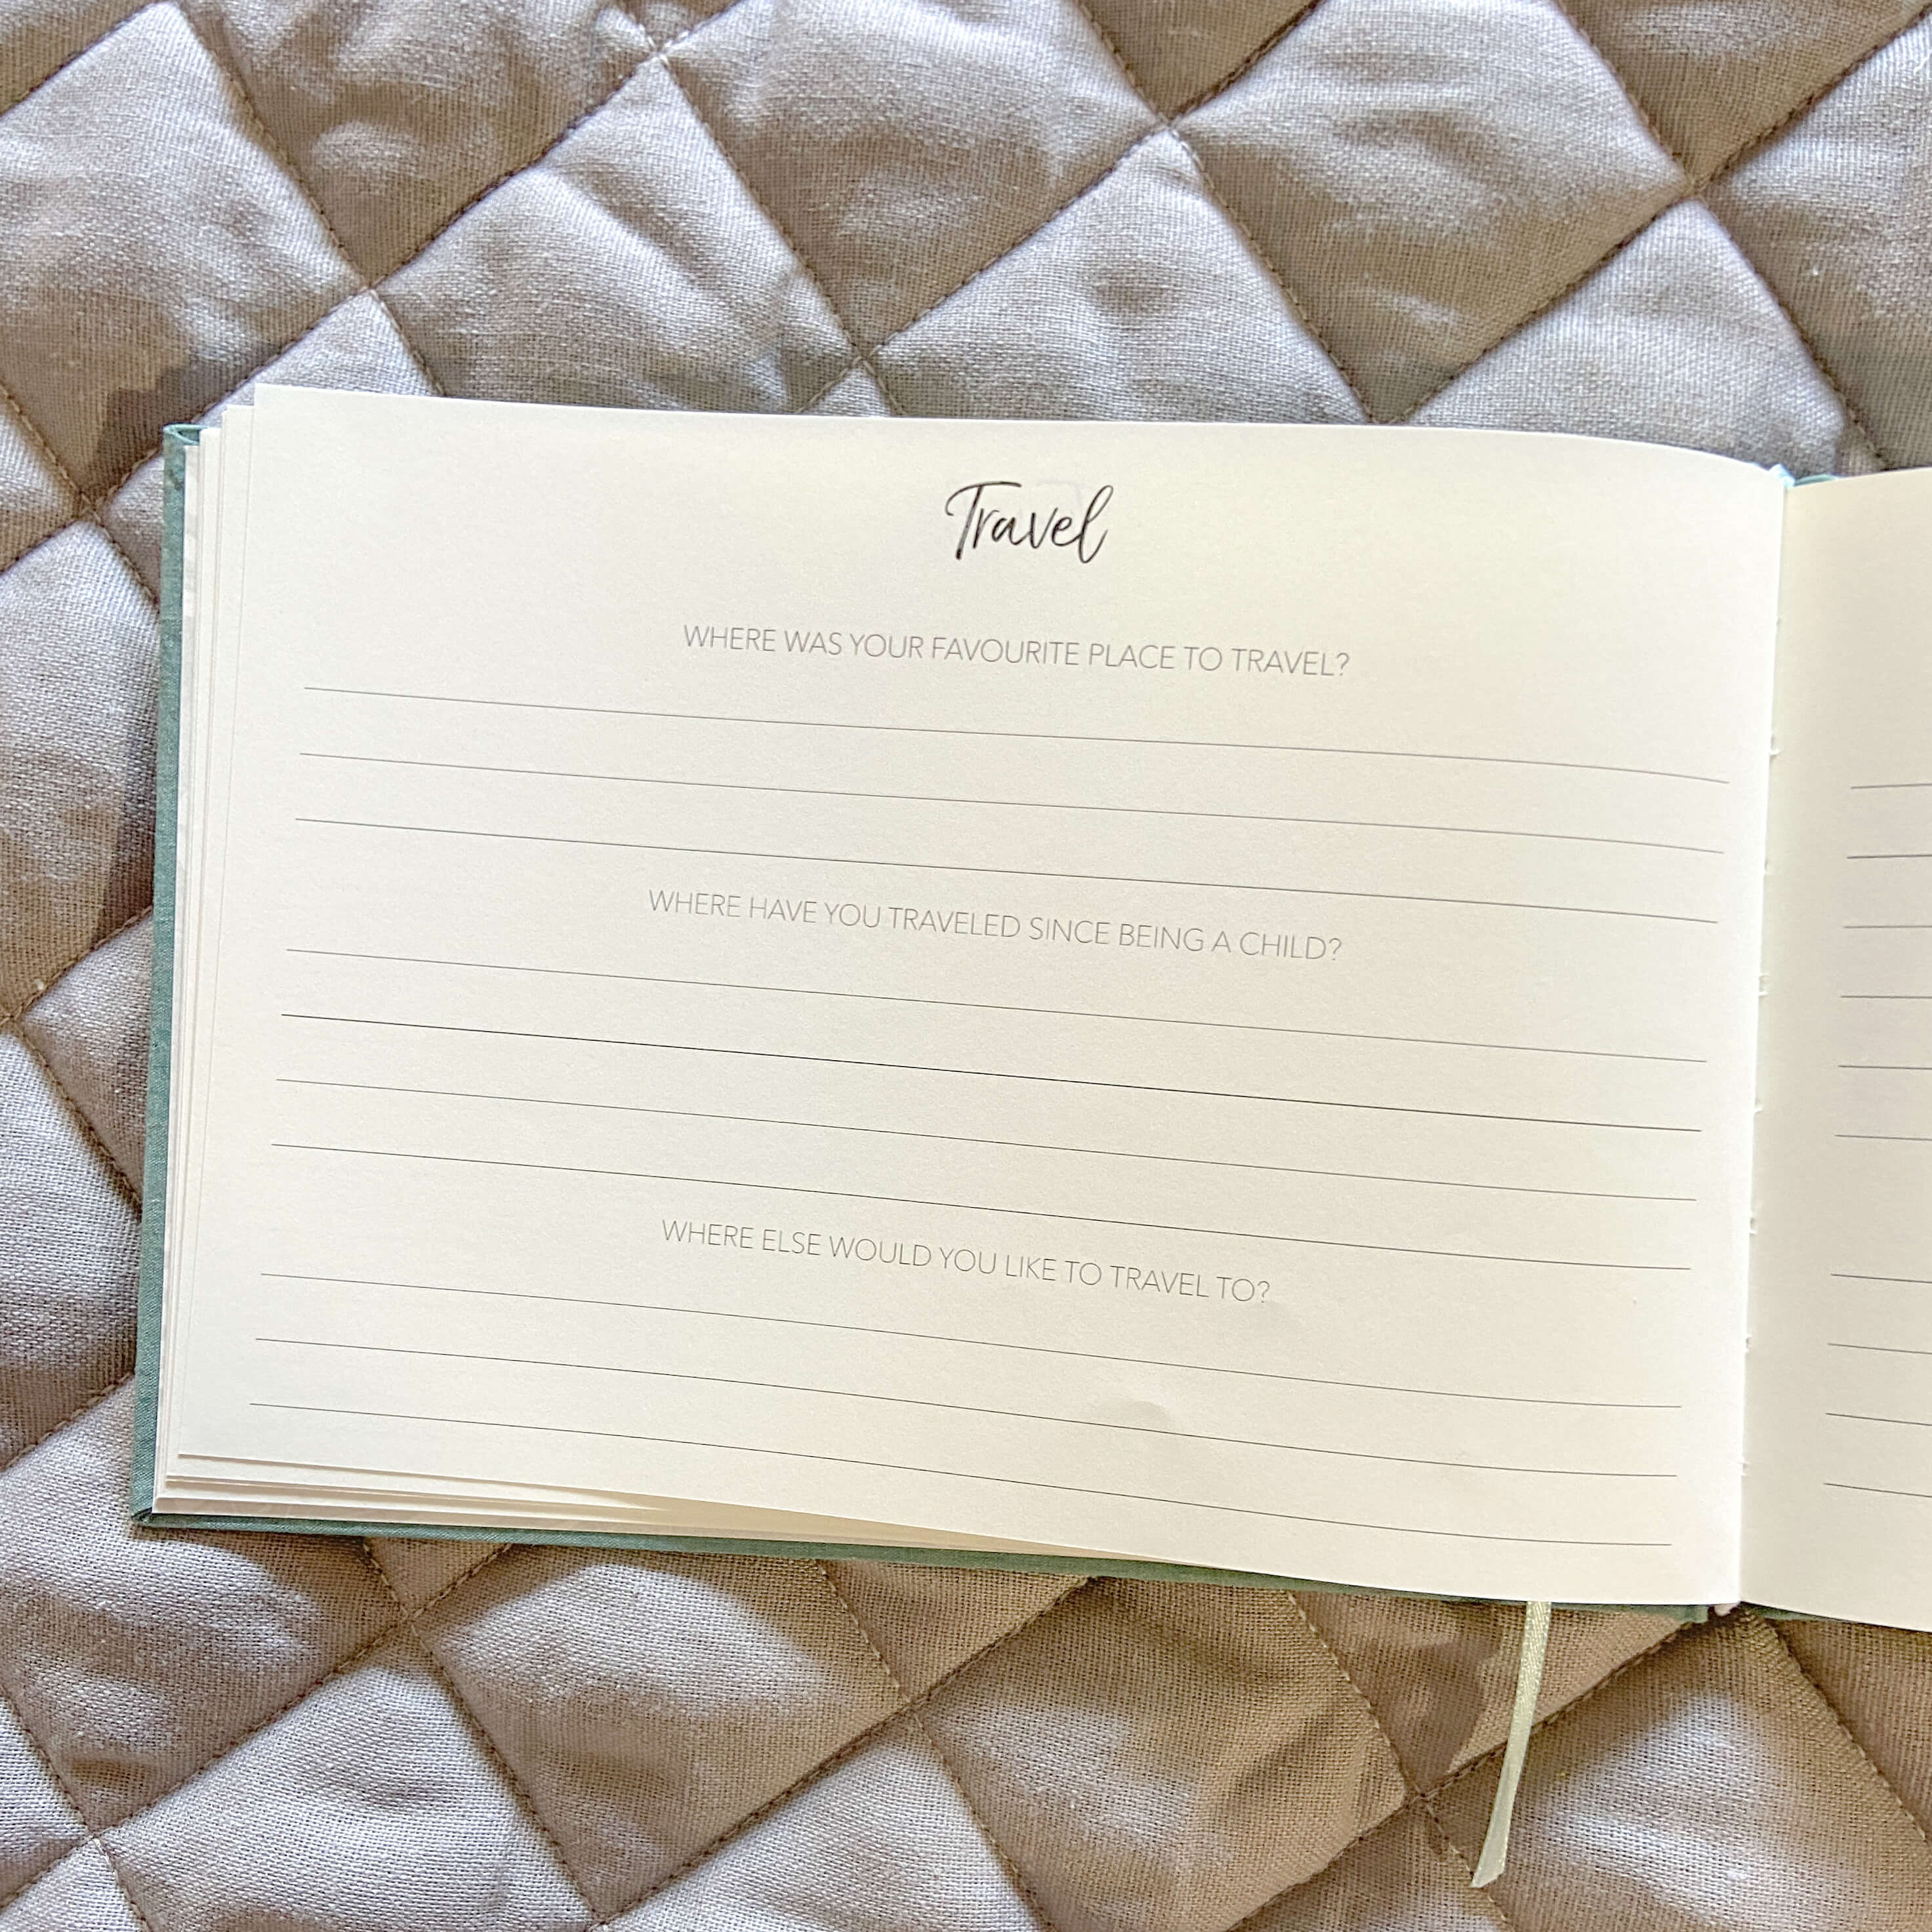 Travel
WHERE WAS YOUR FAVOURITE PLACE TO TRAVEL?
WHERE HAVE YOU TRAVELED SINCE BEING A CHILD?
WHERE ELSE WOULD YOU LIKE TO TRAVEL TO?